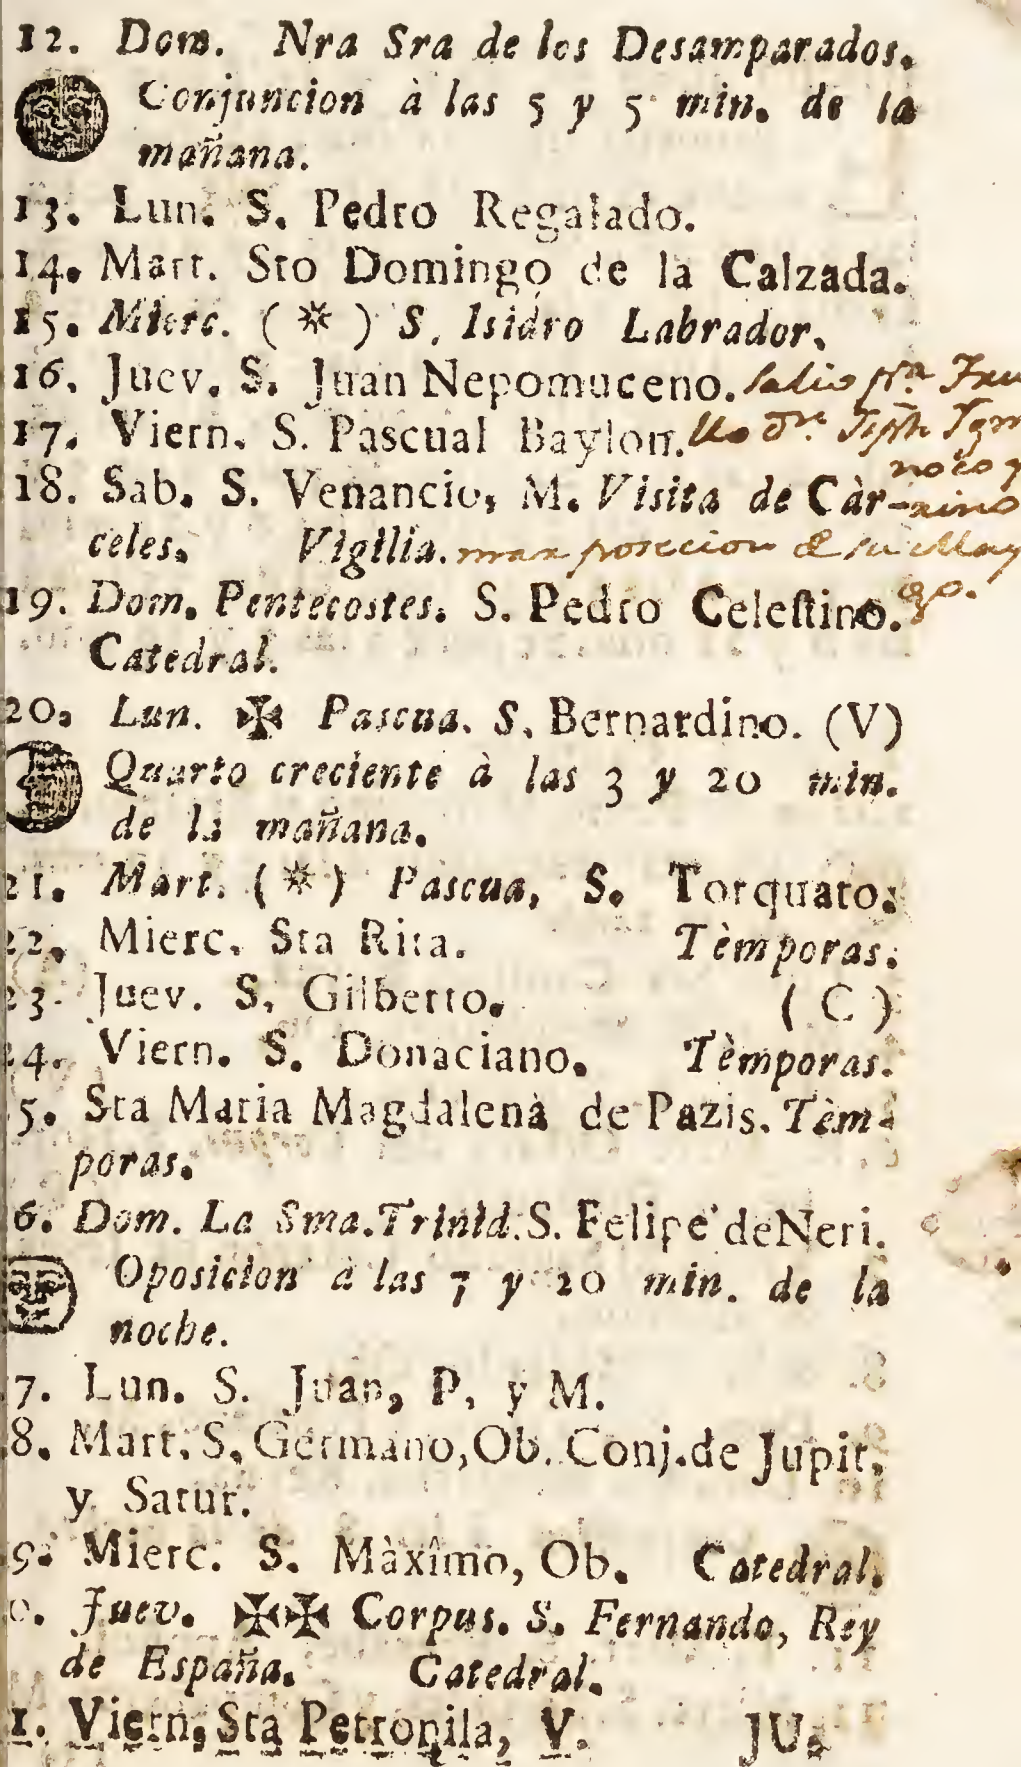 12. Dom. Nra Sra de los Desamparados.
Conjuncion à las 5 y 5 min. de la
mañana.
13. Lun. S. Pedro Regalado.
14. Mart. Sto Domingo de la Calzada.
15. Mierc. ( ☼ ) S. Isidro Labrador.
16. Juev. S. Juan Nepomuceno. salio pra
17. Viern. S. Pascual Baylon.
18. Sab. S. Venancio, M. Visita de Càr-
celes. Vigilia. posecion
19. Dom. Pentecostes. S. Pedro Celeſtino.
Catedral.
20. Lun. ✠ Pascua. S. Bernardino. (V)
Quarto creciente à las 3 y 20 min.
de la mañana.
21. Mart. ( ☼ ) Pascua, S. Torquato.
22. Mierc. Sta Rita. Tèmporas.
23. Juev. S. Gilberto. ( C )
24. Viern. S. Donaciano. Tèmporas.
5. Sta Maria Magdalenà de Pazis. Tèm-
poras.
6. Dom. La Sma. Trinid. S. Felipe de Neri.
Oposicion à las 7 y 20 min. de la
noche.
7. Lun. S. Juan, P. y M.
8. Mart. S. Germano, Ob. Conj. de Jupit.
y Satur.
9. Mierc. S. Màxîmo, Ob. Catedral.
0. Juev. ✠✠ Corpus. S. Fernando, Rey
de España. Catedral.
1. Viern. Sta Petronila, V. JU-